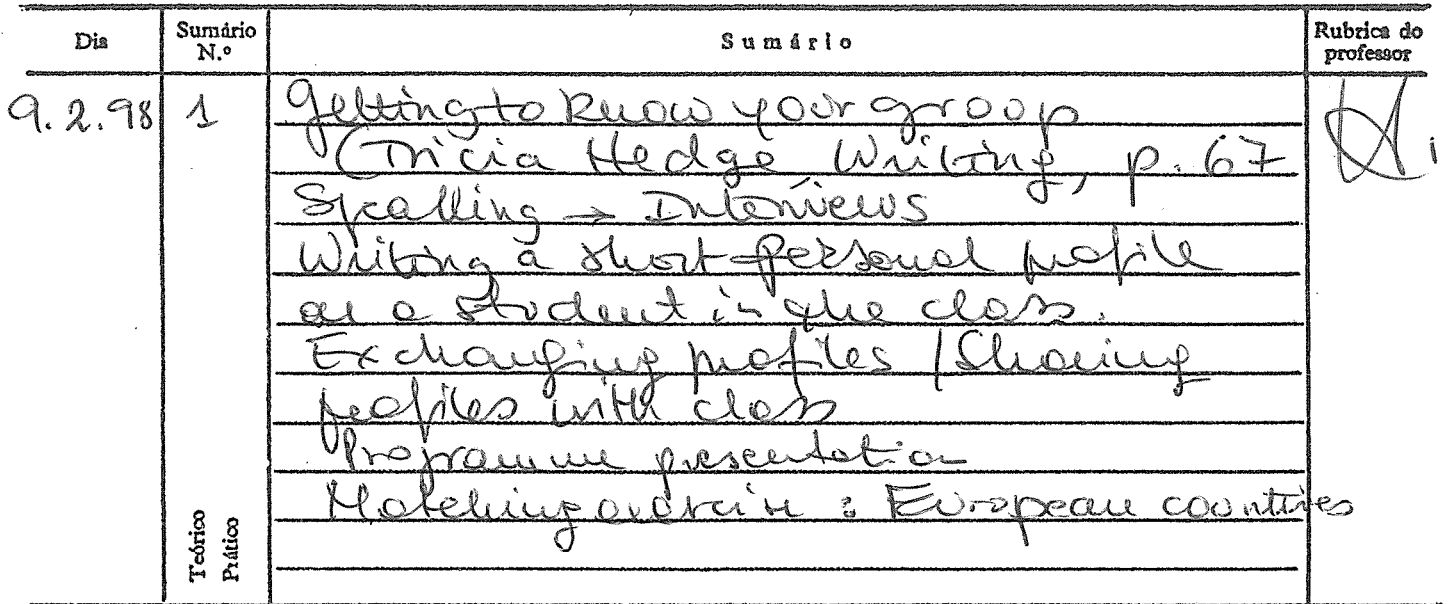 Dia Sumário N.º Sumário Rubrica do professor
9.2.98 1 Getting to know your group
(Tricia Hedge Writing, p. 67
Speaking → Interviews
Writing a short personal profile
on a student in the class.
Exchanging profiles / Sharing
profiles with class
Programme presentation
Matching exercise : European countries
Teórico
Prático